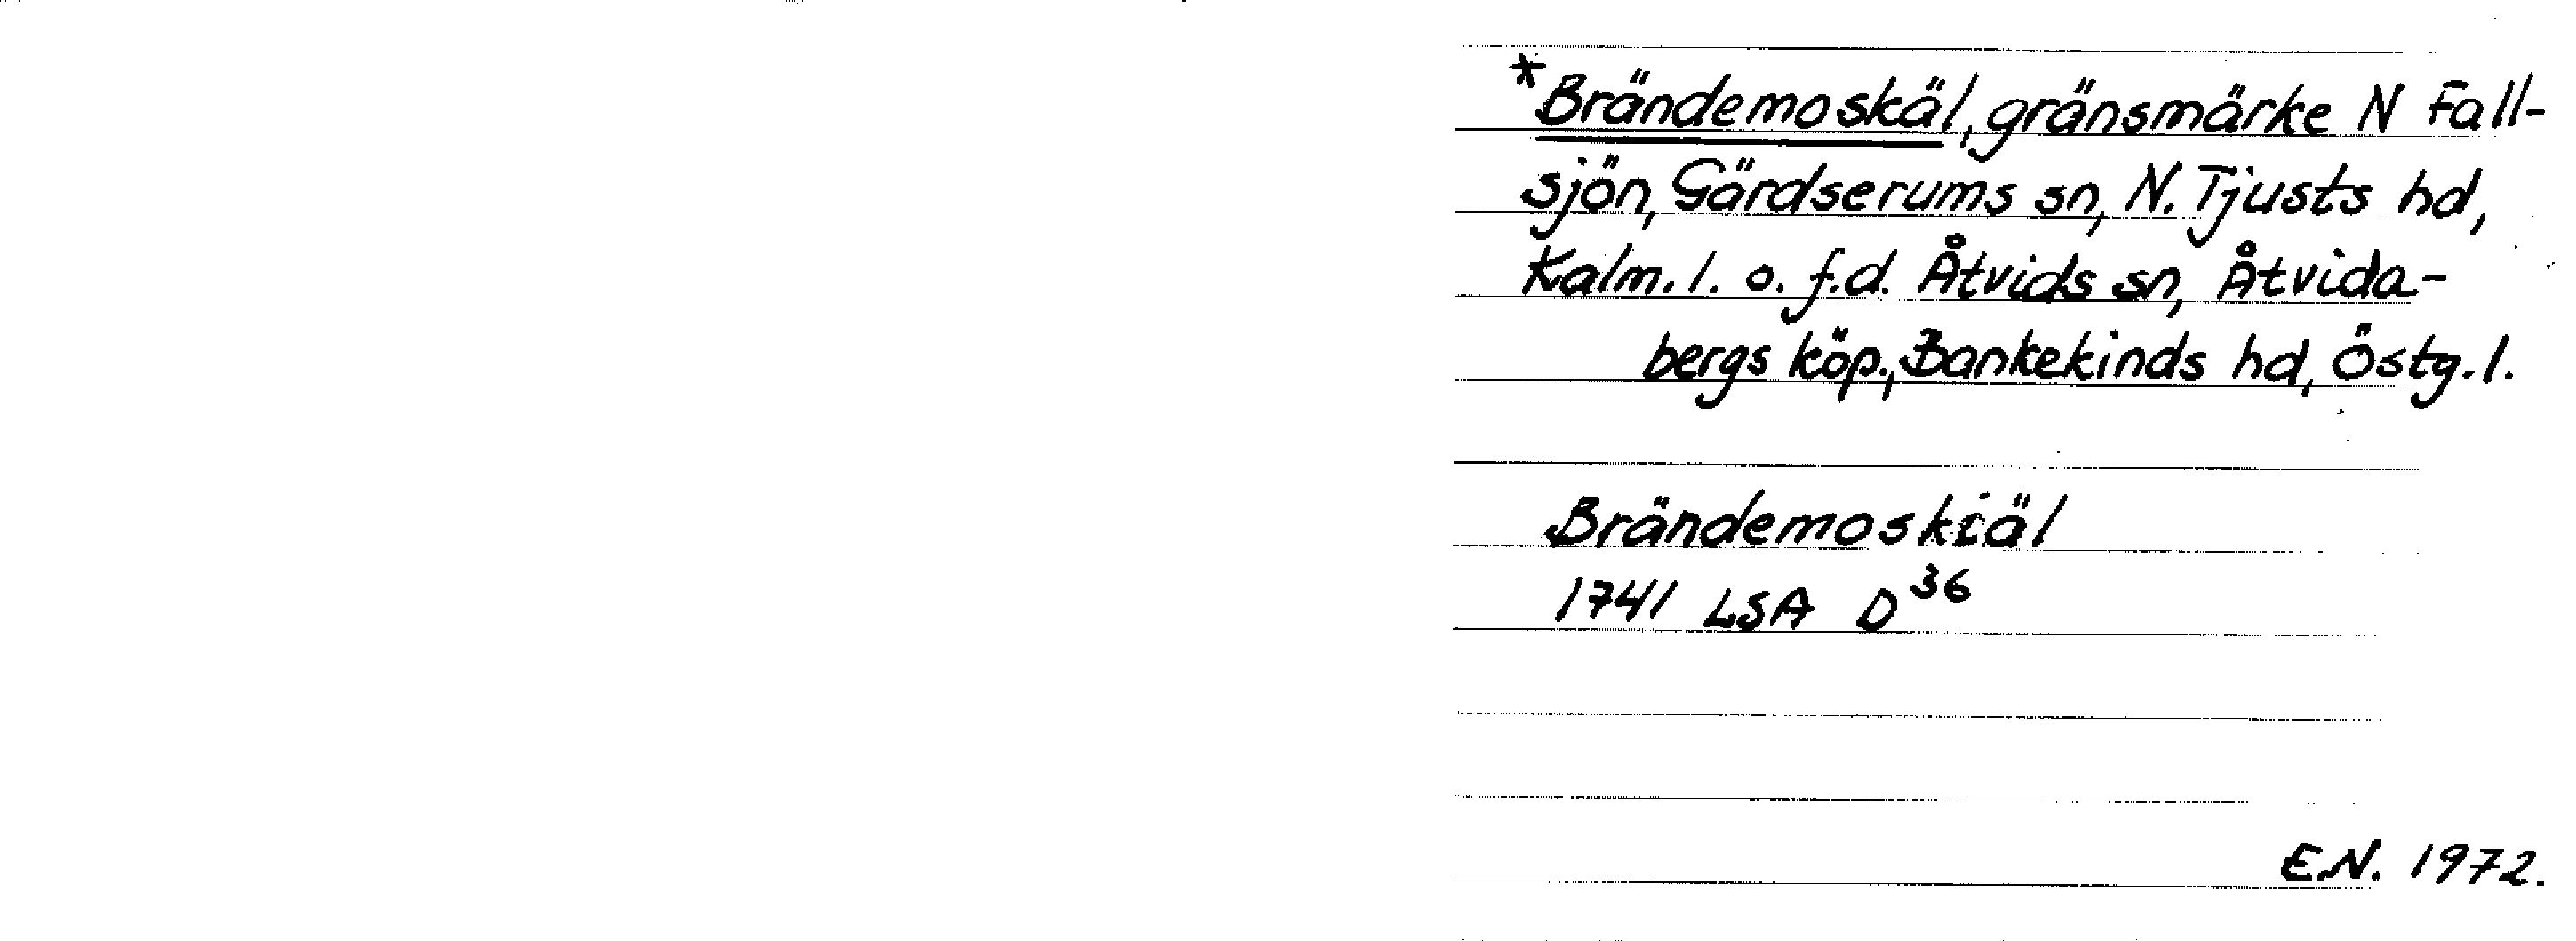 *Brändemoskäl, gränsmärke N Fall-
sjön, Gärdserums sn, N. Tjusts hd,
Kalm. l. o. f.d. Åtvids sn, Åtvida-
bergs köp., Bankekinds hd, Östg. l.
Brändemoskiäl
1741 LSA D36
E.N. 1972.